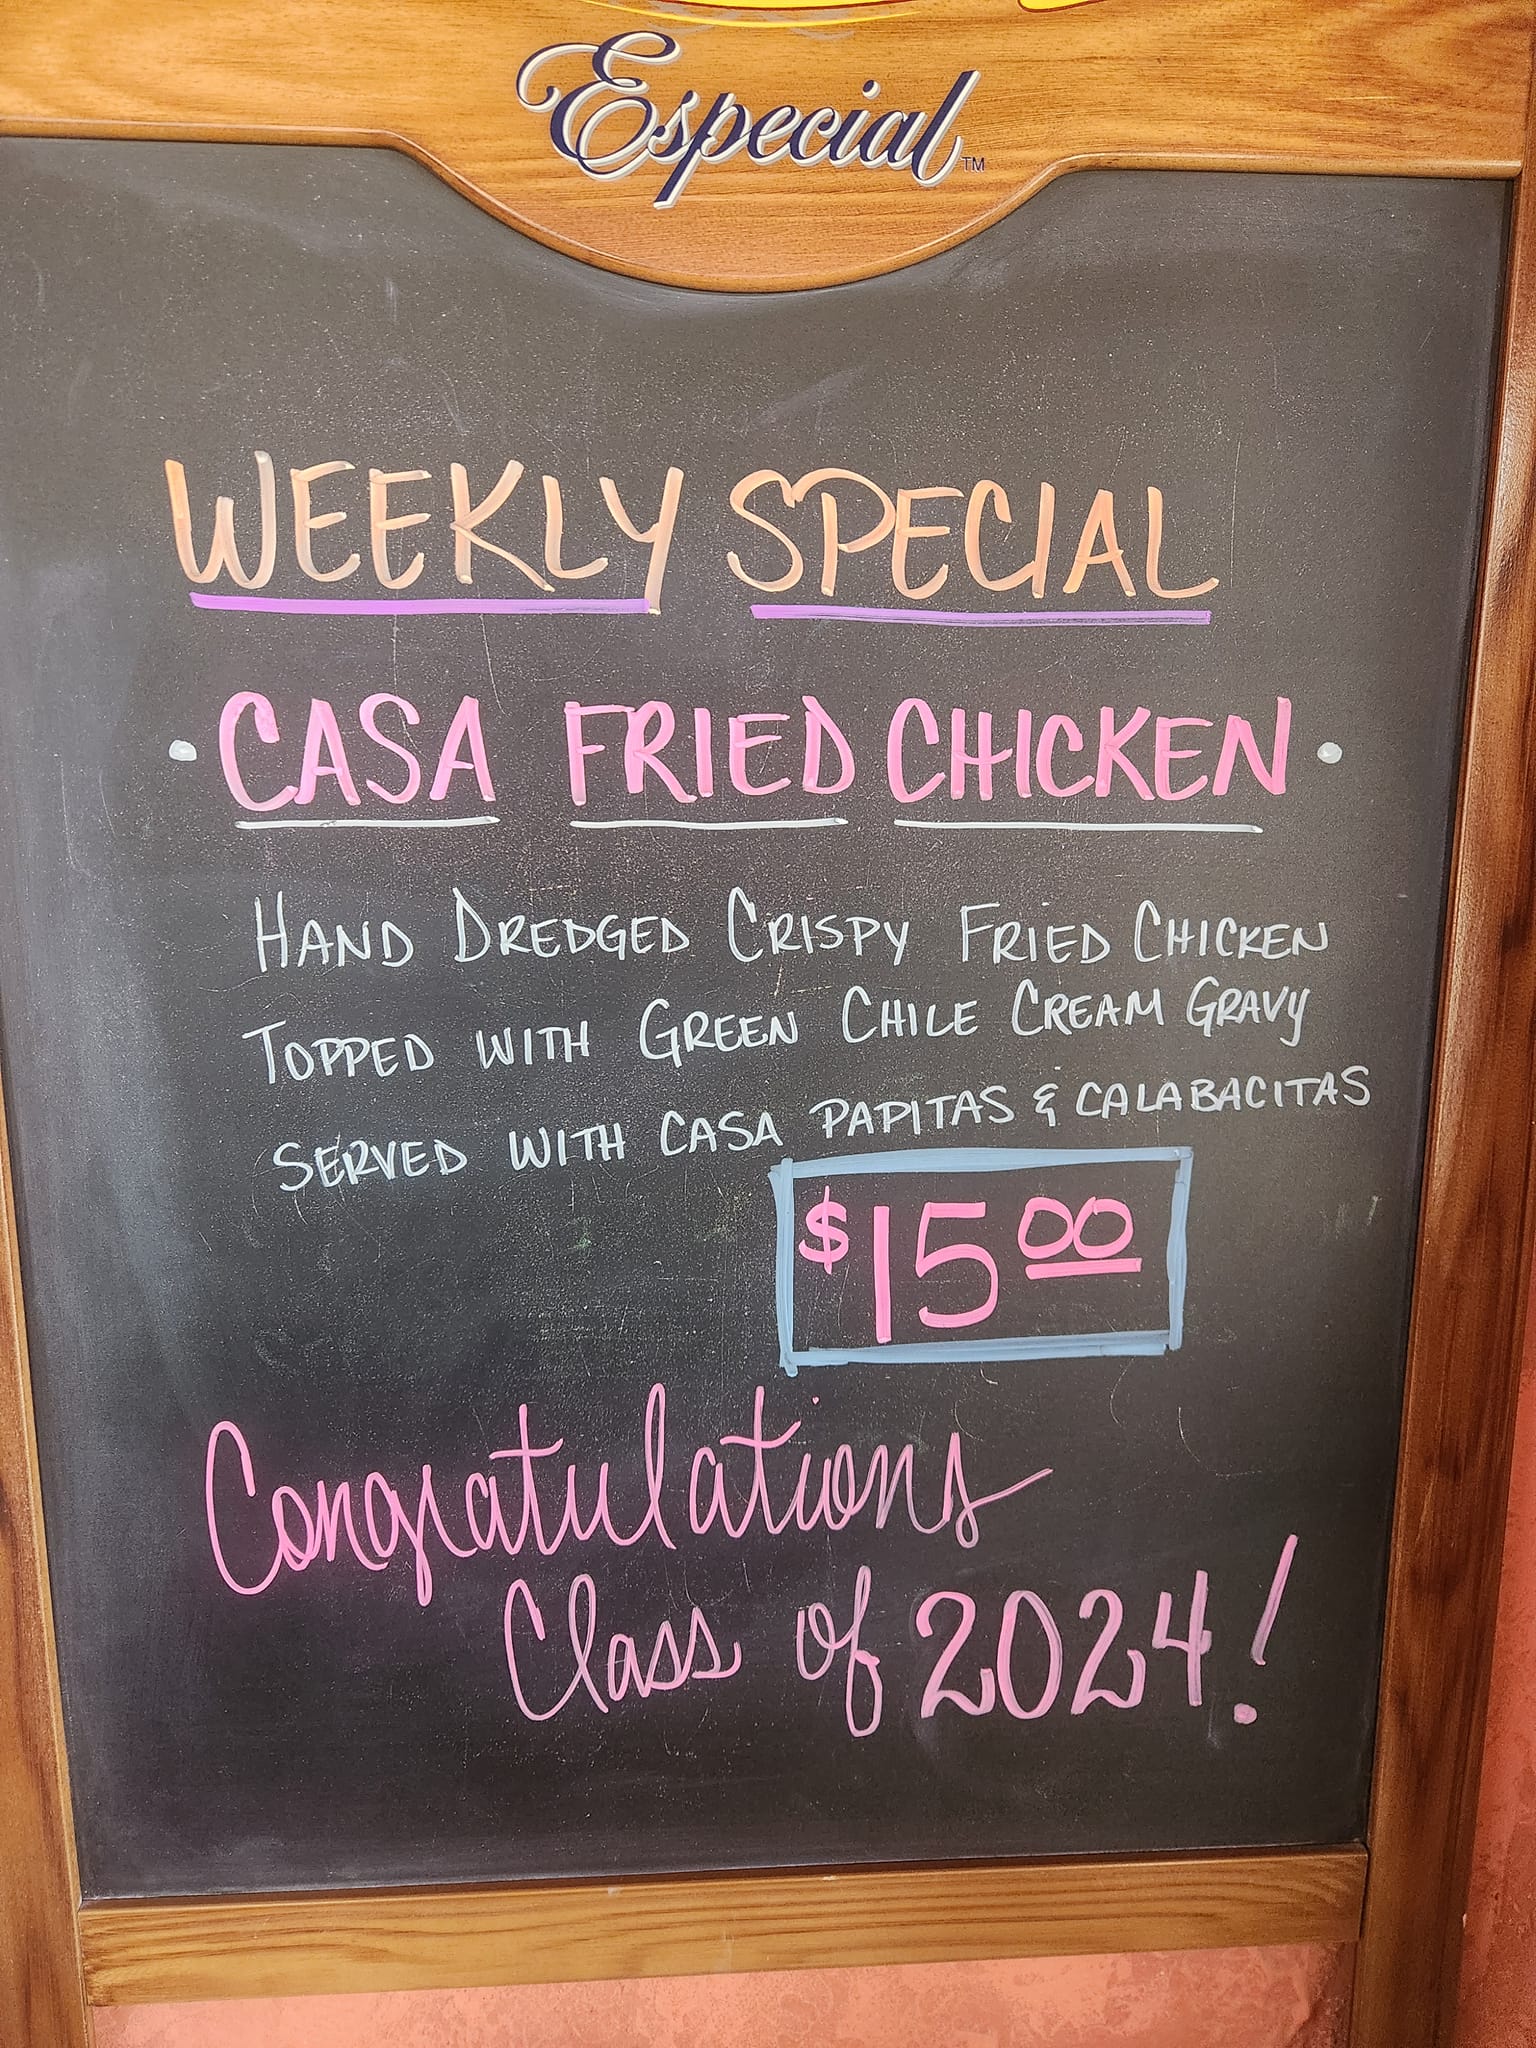 Especial™
WEEKLY SPECIAL
• CASA FRIED CHICKEN •
HAND DREDGED CRISPY FRIED CHICKEN
TOPPED WITH GREEN CHILE CREAM GRAVY
SERVED WITH CASA PAPITAS & CALABACITAS
$15.00
Congratulations
Class of 2024!